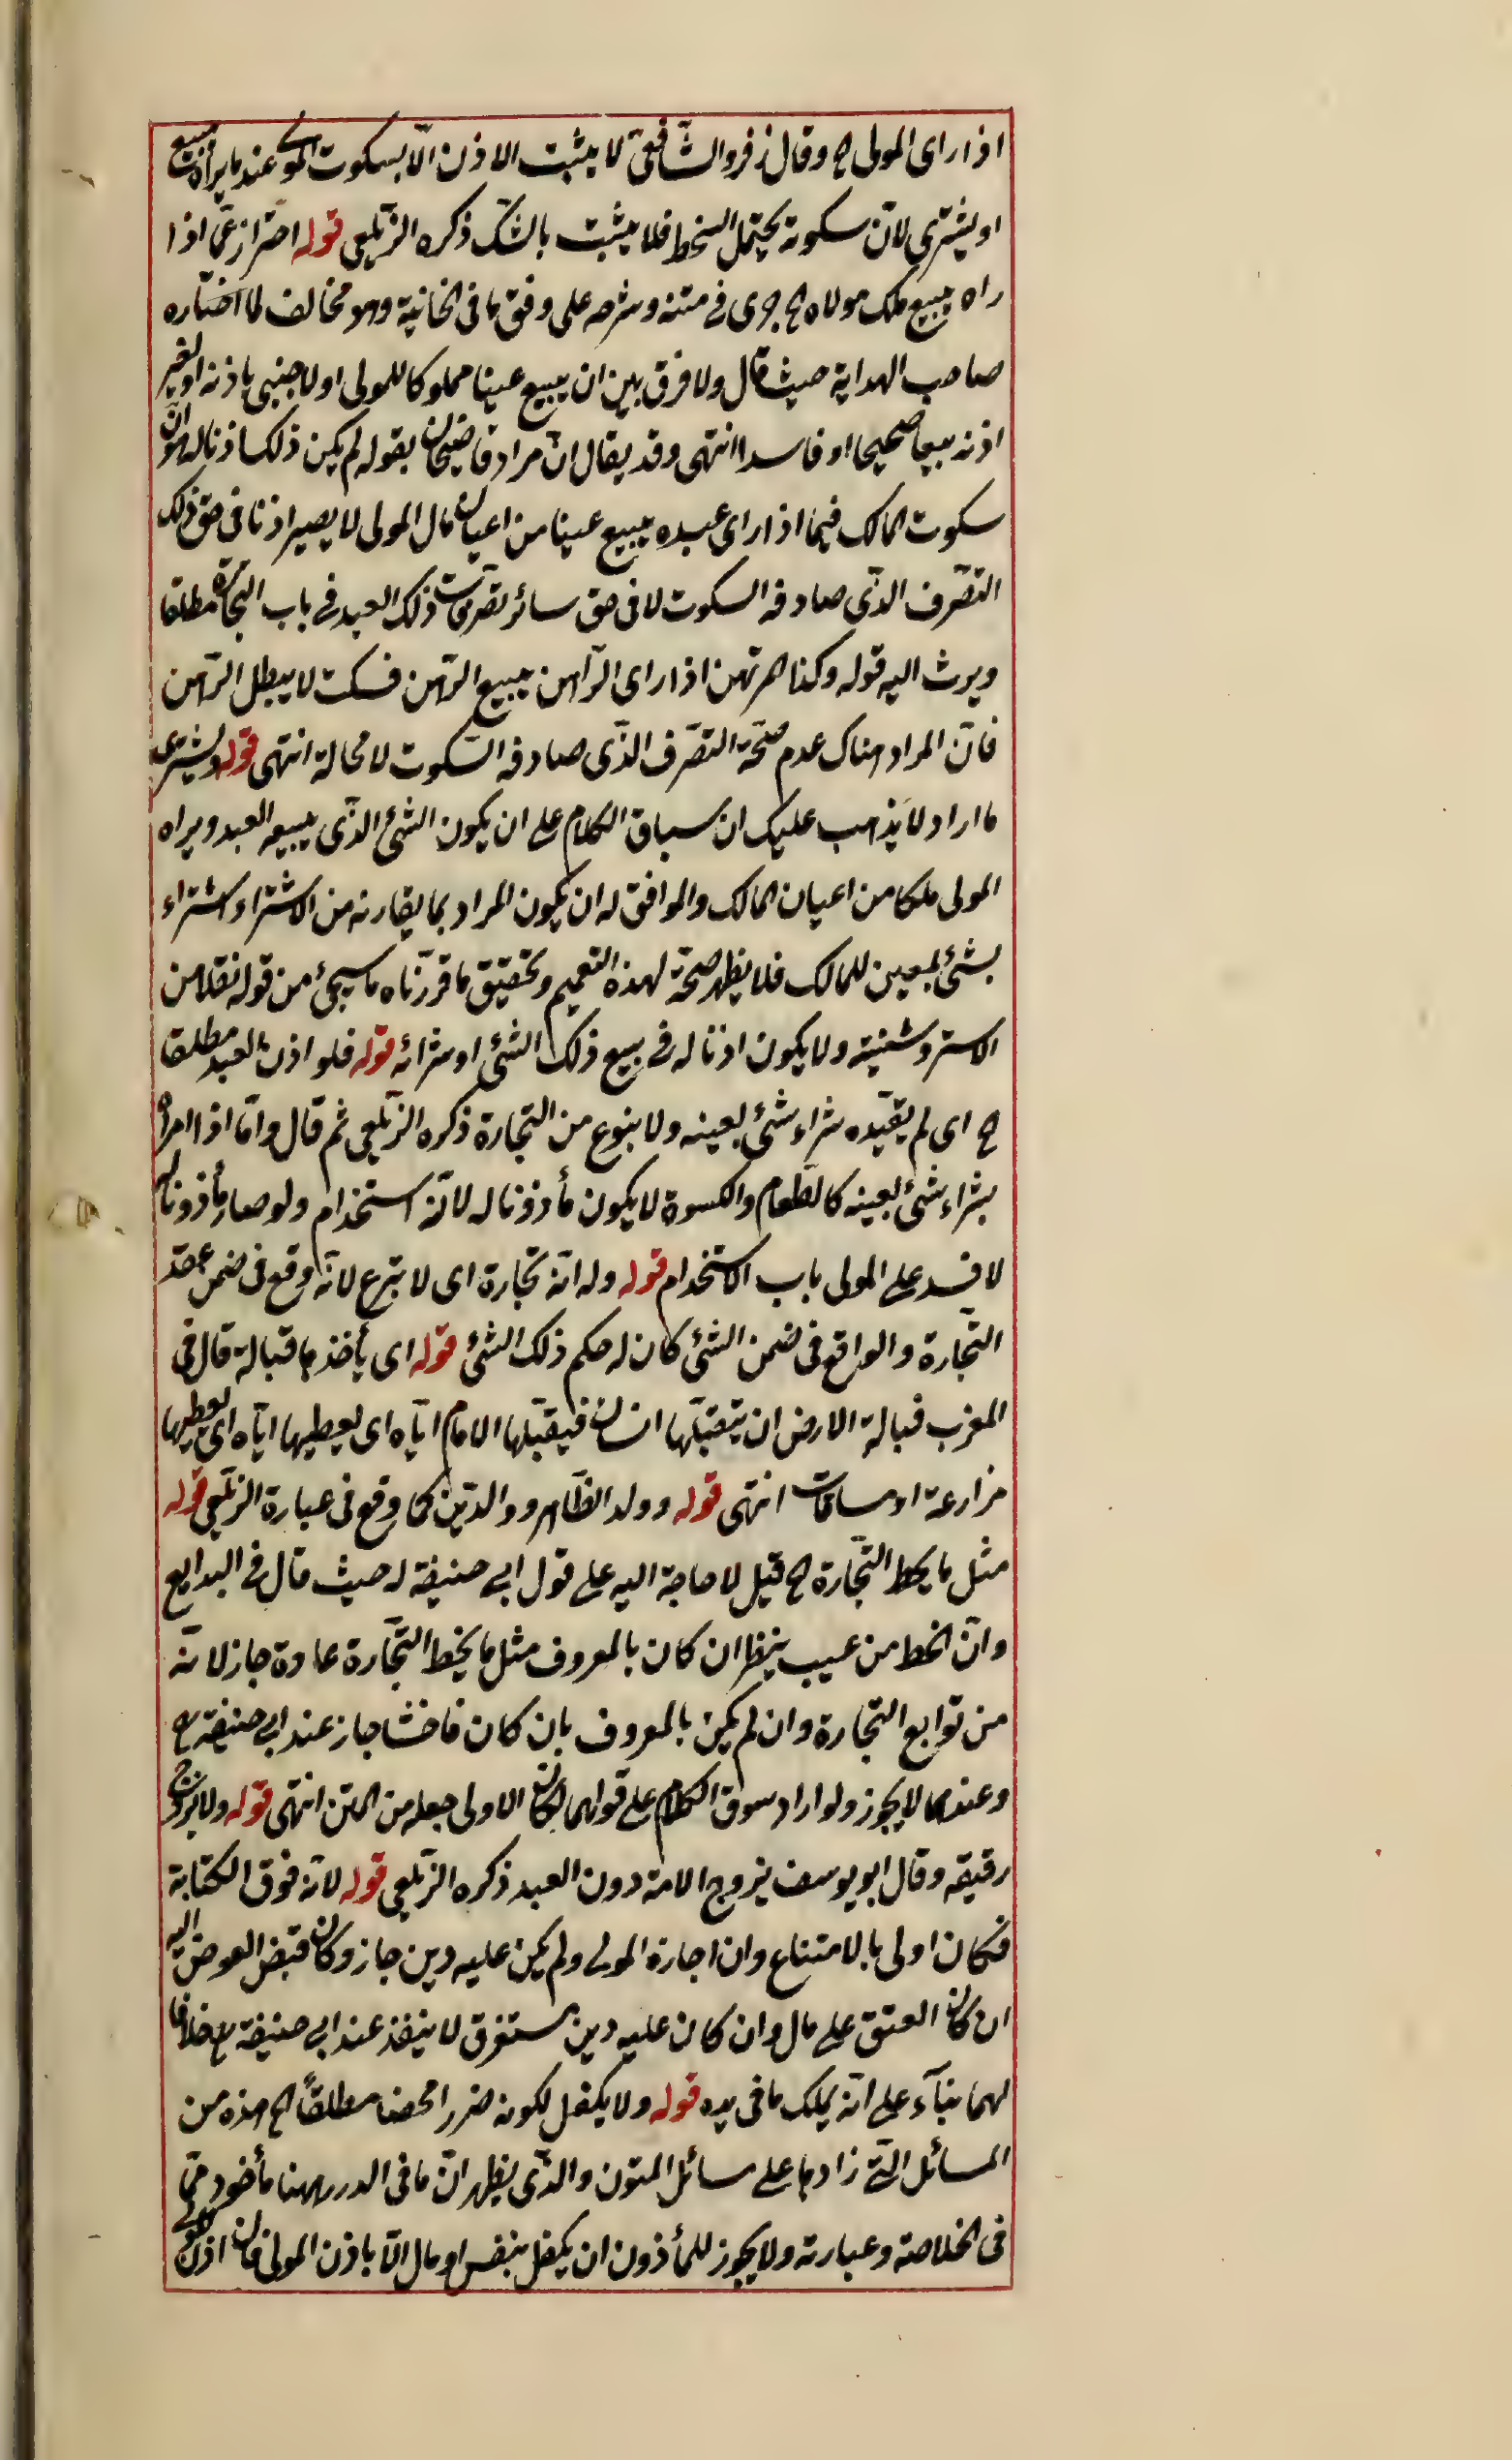 اذا راى المولى الخ وقال زفر والشافعى لا يثبت الاذن الا بسكوت المولى عند ما يراه يبيع
او يشترى لان سكوته يحتمل السخط فلا يثبت بالشك ذكره الزيلعى قوله احتراز عما اذا
راه يبيع ملك مولاه الخ جرى فى متنه وشرحه على وفق ما فى الخانية وهو مخالف لما اختاره
صاحب الهداية حيث قال ولا فرق بين ان يبيع عينا مملوكا للمولى او لاجنبى باذنه او بغير
اذنه بيعا صحيحا او فاسدا انتهى وقد يقال ان مراد قاضيخان بقوله لم يكن ذلك اذنا له هو ان
سكوت المالك فيما اذا راى عبده يبيع عينا من اعيان مال المولى لا يصير اذنا فى حق ذلك
التصرف الذى صادفه السكوت لا فى حق سائر تصرفات ذلك العبد فى باب التجارة مطلقا
ويرشد اليه قوله وكذا المرتهن اذا راى الراهن يبيع الرهن فسكت لا يبطل الرهن
فان المراد هناك عدم صحة التصرف الذى صادفه السكوت لا محالة انتهى قوله ويشترى
ما اراد لا يذهب عليك ان سياق الكلام على ان يكون الشئ الذى يبيعه العبد ويراه
المولى ملكا من اعيان المالك والموافق له ان يكون المراد بما يقارنه من الاشتراء اشتراء
بشئ بعين للمالك فلا يظهر صحة لهذه التعميم وتحقيق ما قررناه ما سيجئ من قوله نقلا من
الاستروشنية ولا يكون اذنا له فى بيع ذلك الشئ او شرائه قوله فلو اذن للعبد مطلقا
الخ اى لم يقيده شراء شئ بعينه ولا بنوع من التجارة ذكره الزيلعى ثم قال واما اذا امراه
بشراء شئ بعينه كالطعام والكسوة لا يكون مأذونا له لانه استخدام ولو صار مأذونا له
لافسد على المولى باب الاستخدام قوله وله انه تجارة اى لا تبرع لانه وقع فى ضمن عقد
التجارة والواقع فى ضمن الشئ كان له حكم ذلك الشئ قوله اى يأخذها قبالة قال فى
المغرب قبالة الارض ان يتقبلها انسان فيقبلها الامام اياه اى يعطيها اياه اى يعطيها
مزارعة او مساقات انتهى قوله وولد الظاهر ووالدين كما وقع فى عبارة الزيلعى قوله
مثل ما يحط التجارة الخ قيل لا حاجة اليه على قول ابى حنيفة له حيث قال فى البدايع
وان الحط من عيب ينظر ان كان بالمعروف مثل ما يحط التجارة عادة جاز لانه
من توابع التجارة وان لم يكن بالمعروف بان كان فاحشا جاز عند ابى حنيفة رح
وعندهما لا يجوز ولو اراد سوق الكلام على قولهما لكان الاولى جعله من المتن انتهى قوله ولا يزوج
رقيقه وقال ابو يوسف يزوج الامة دون العبد ذكره الزيلعى قوله لانه فوق الكتابة
فكان اولى بالامتناع وان اجازه المولى ولم يكن عليه دين جاز وكان قبض العوض اليه
ان كان العتق على مال وان كان عليه دين مستغرق لا ينفذ عند ابى حنيفة رح خلافا
لهما بناء على انه يملك ما فى يده قوله ولا يكفل لكونه ضررا محضا مطلقا الخ هذه من
المسائل التى زادها على مسائل المتون والذى يظهر ان ما فى الدرر ههنا مأخوذ مما
فى الخلاصة وعبارته ولا يجوز للمأذون ان يكفل بنفس او مال الا باذن المولى فان اذن المولى